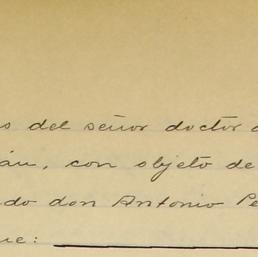 s del señor doctor
án, con objeto de
do don Antonio Pe
ue: